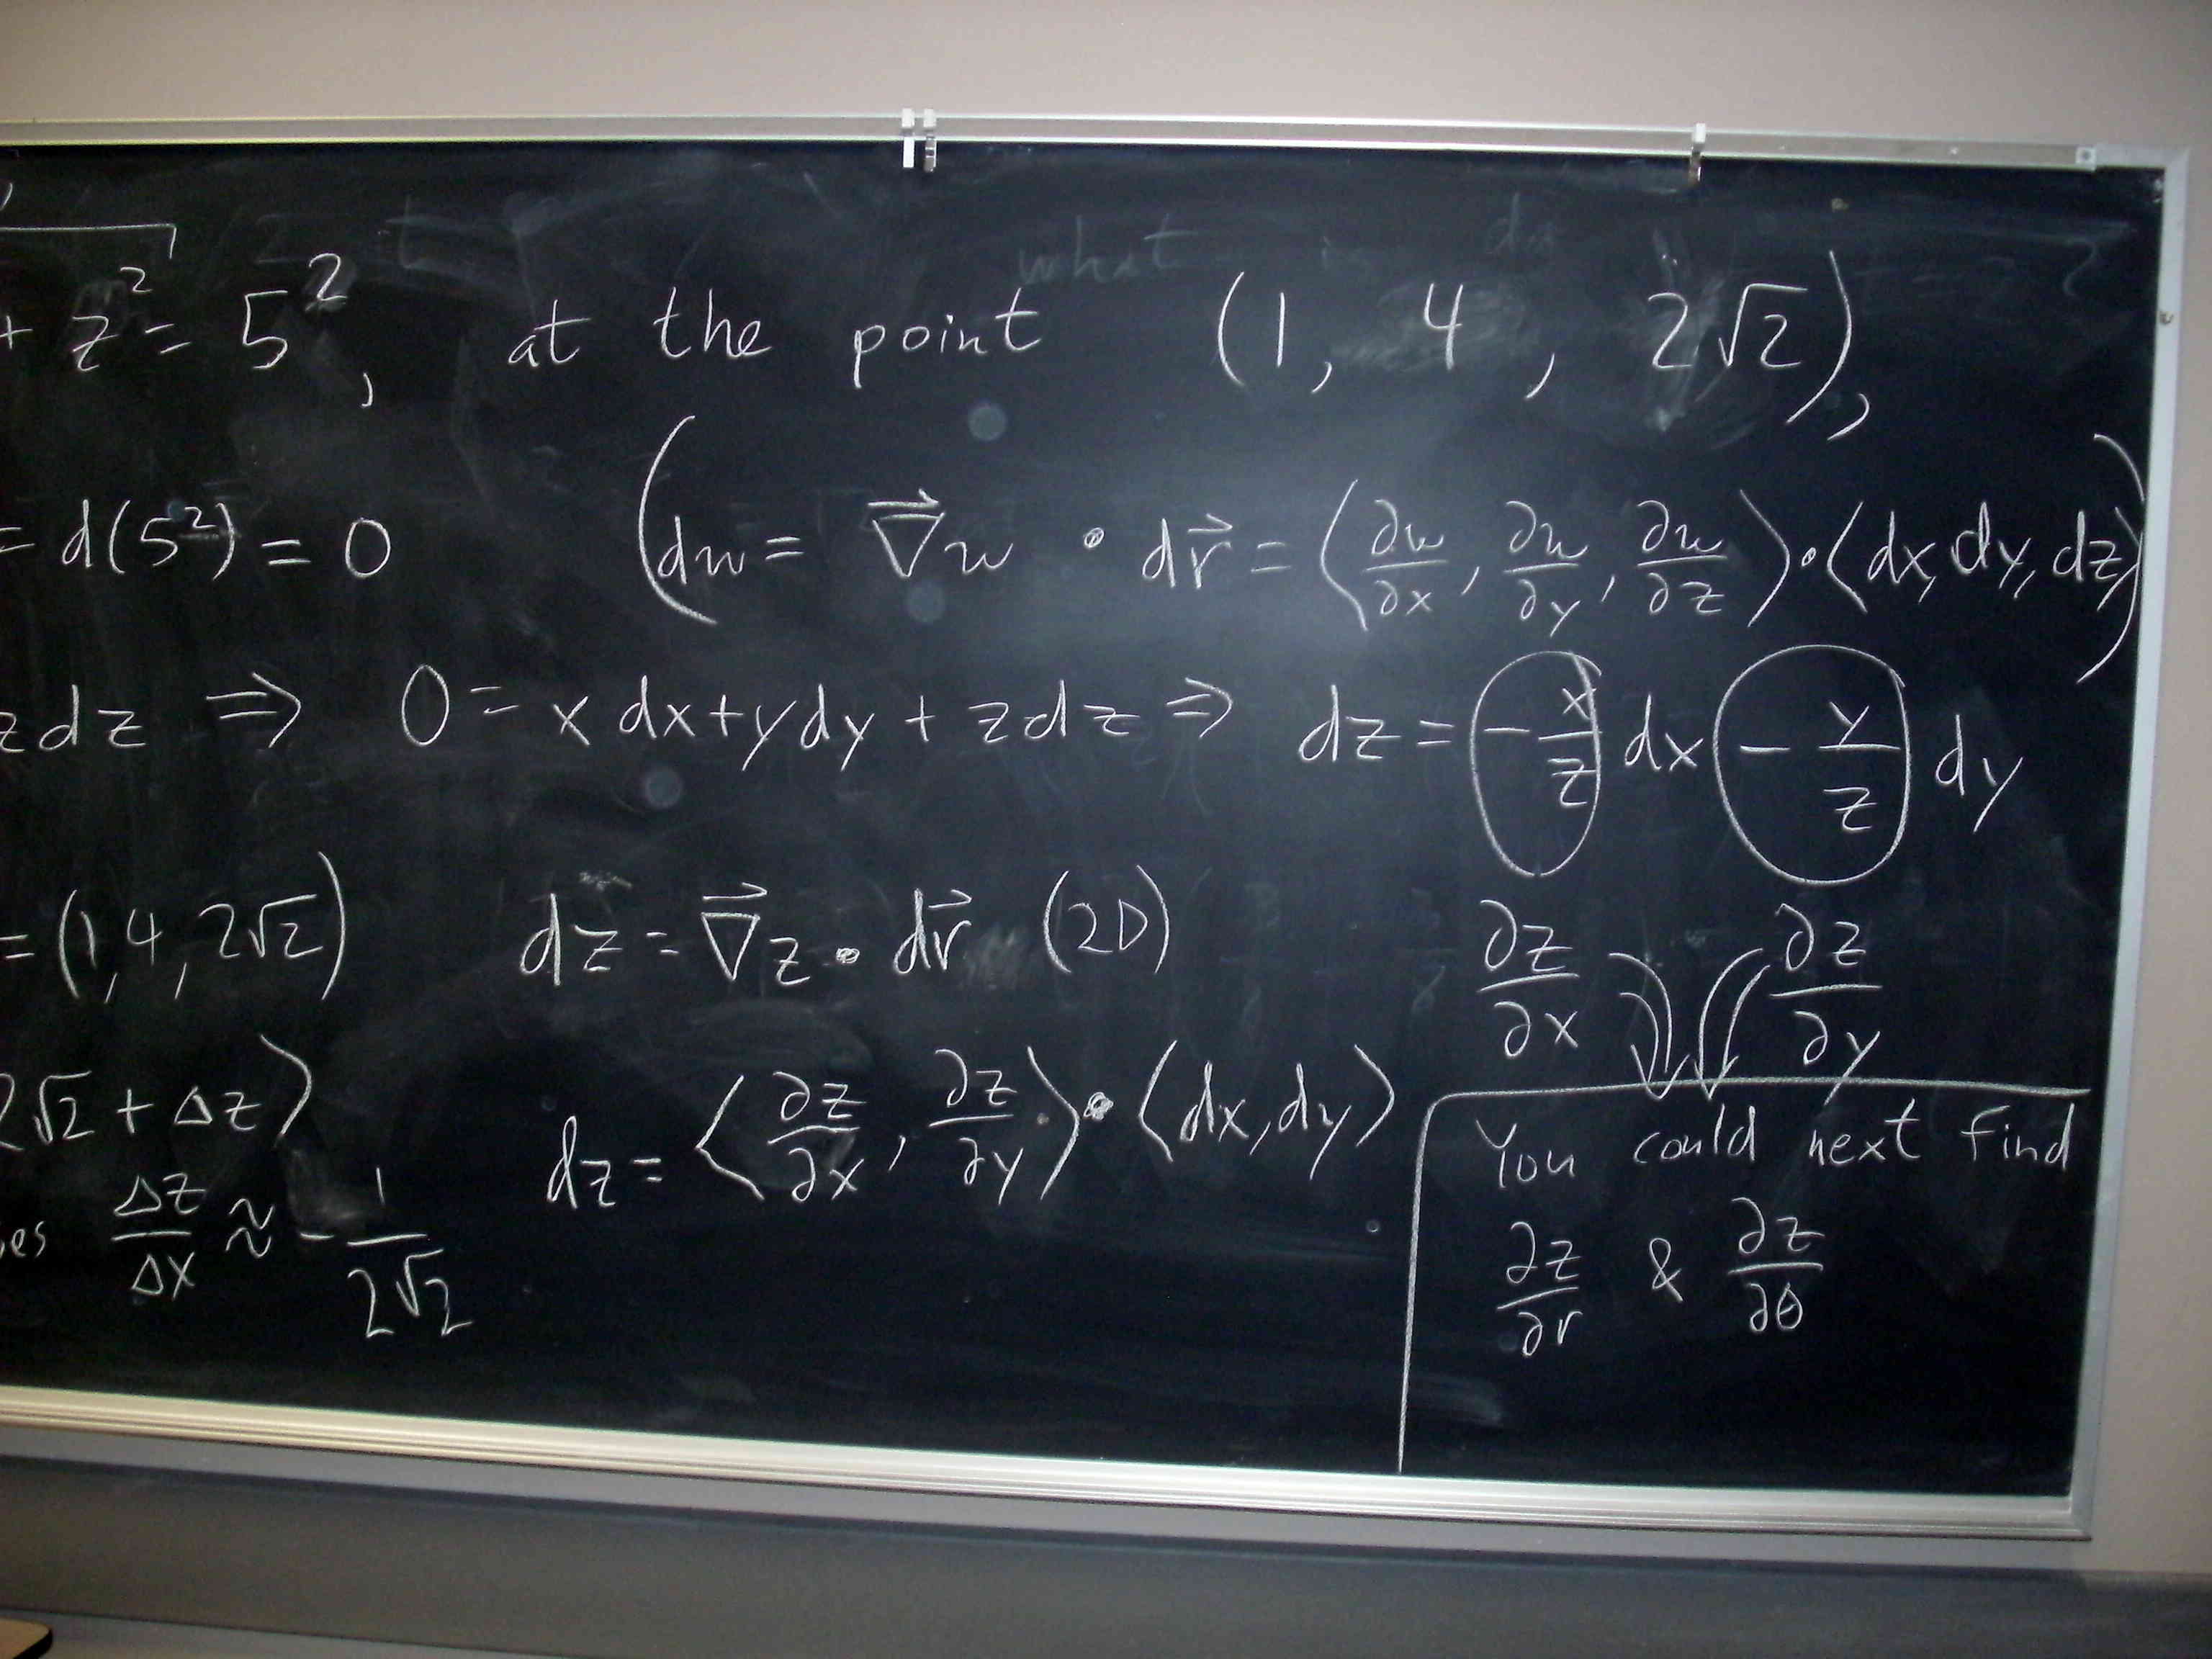 + z² = 5², at the point (1, 4, 2√2),
= d(5²) = 0 (dw = ∇⃗w • dr⃗ = ⟨∂w/∂x, ∂w/∂y, ∂w/∂z⟩ • ⟨dx, dy, dz⟩)
zdz ⇒ 0 = x dx + y dy + z dz ⇒ dz = -x/z dx - y/z dy
= (1, 4, 2√2) dz = ∇⃗z • dr⃗ (2D) ∂z/∂x ∂z/∂y
2√2 + Δz⟩ dz = ⟨∂z/∂x, ∂z/∂y⟩ • ⟨dx, dy⟩
Δz/Δx ≈ -1/2√2
You could next find
∂z/∂r & ∂z/∂θ